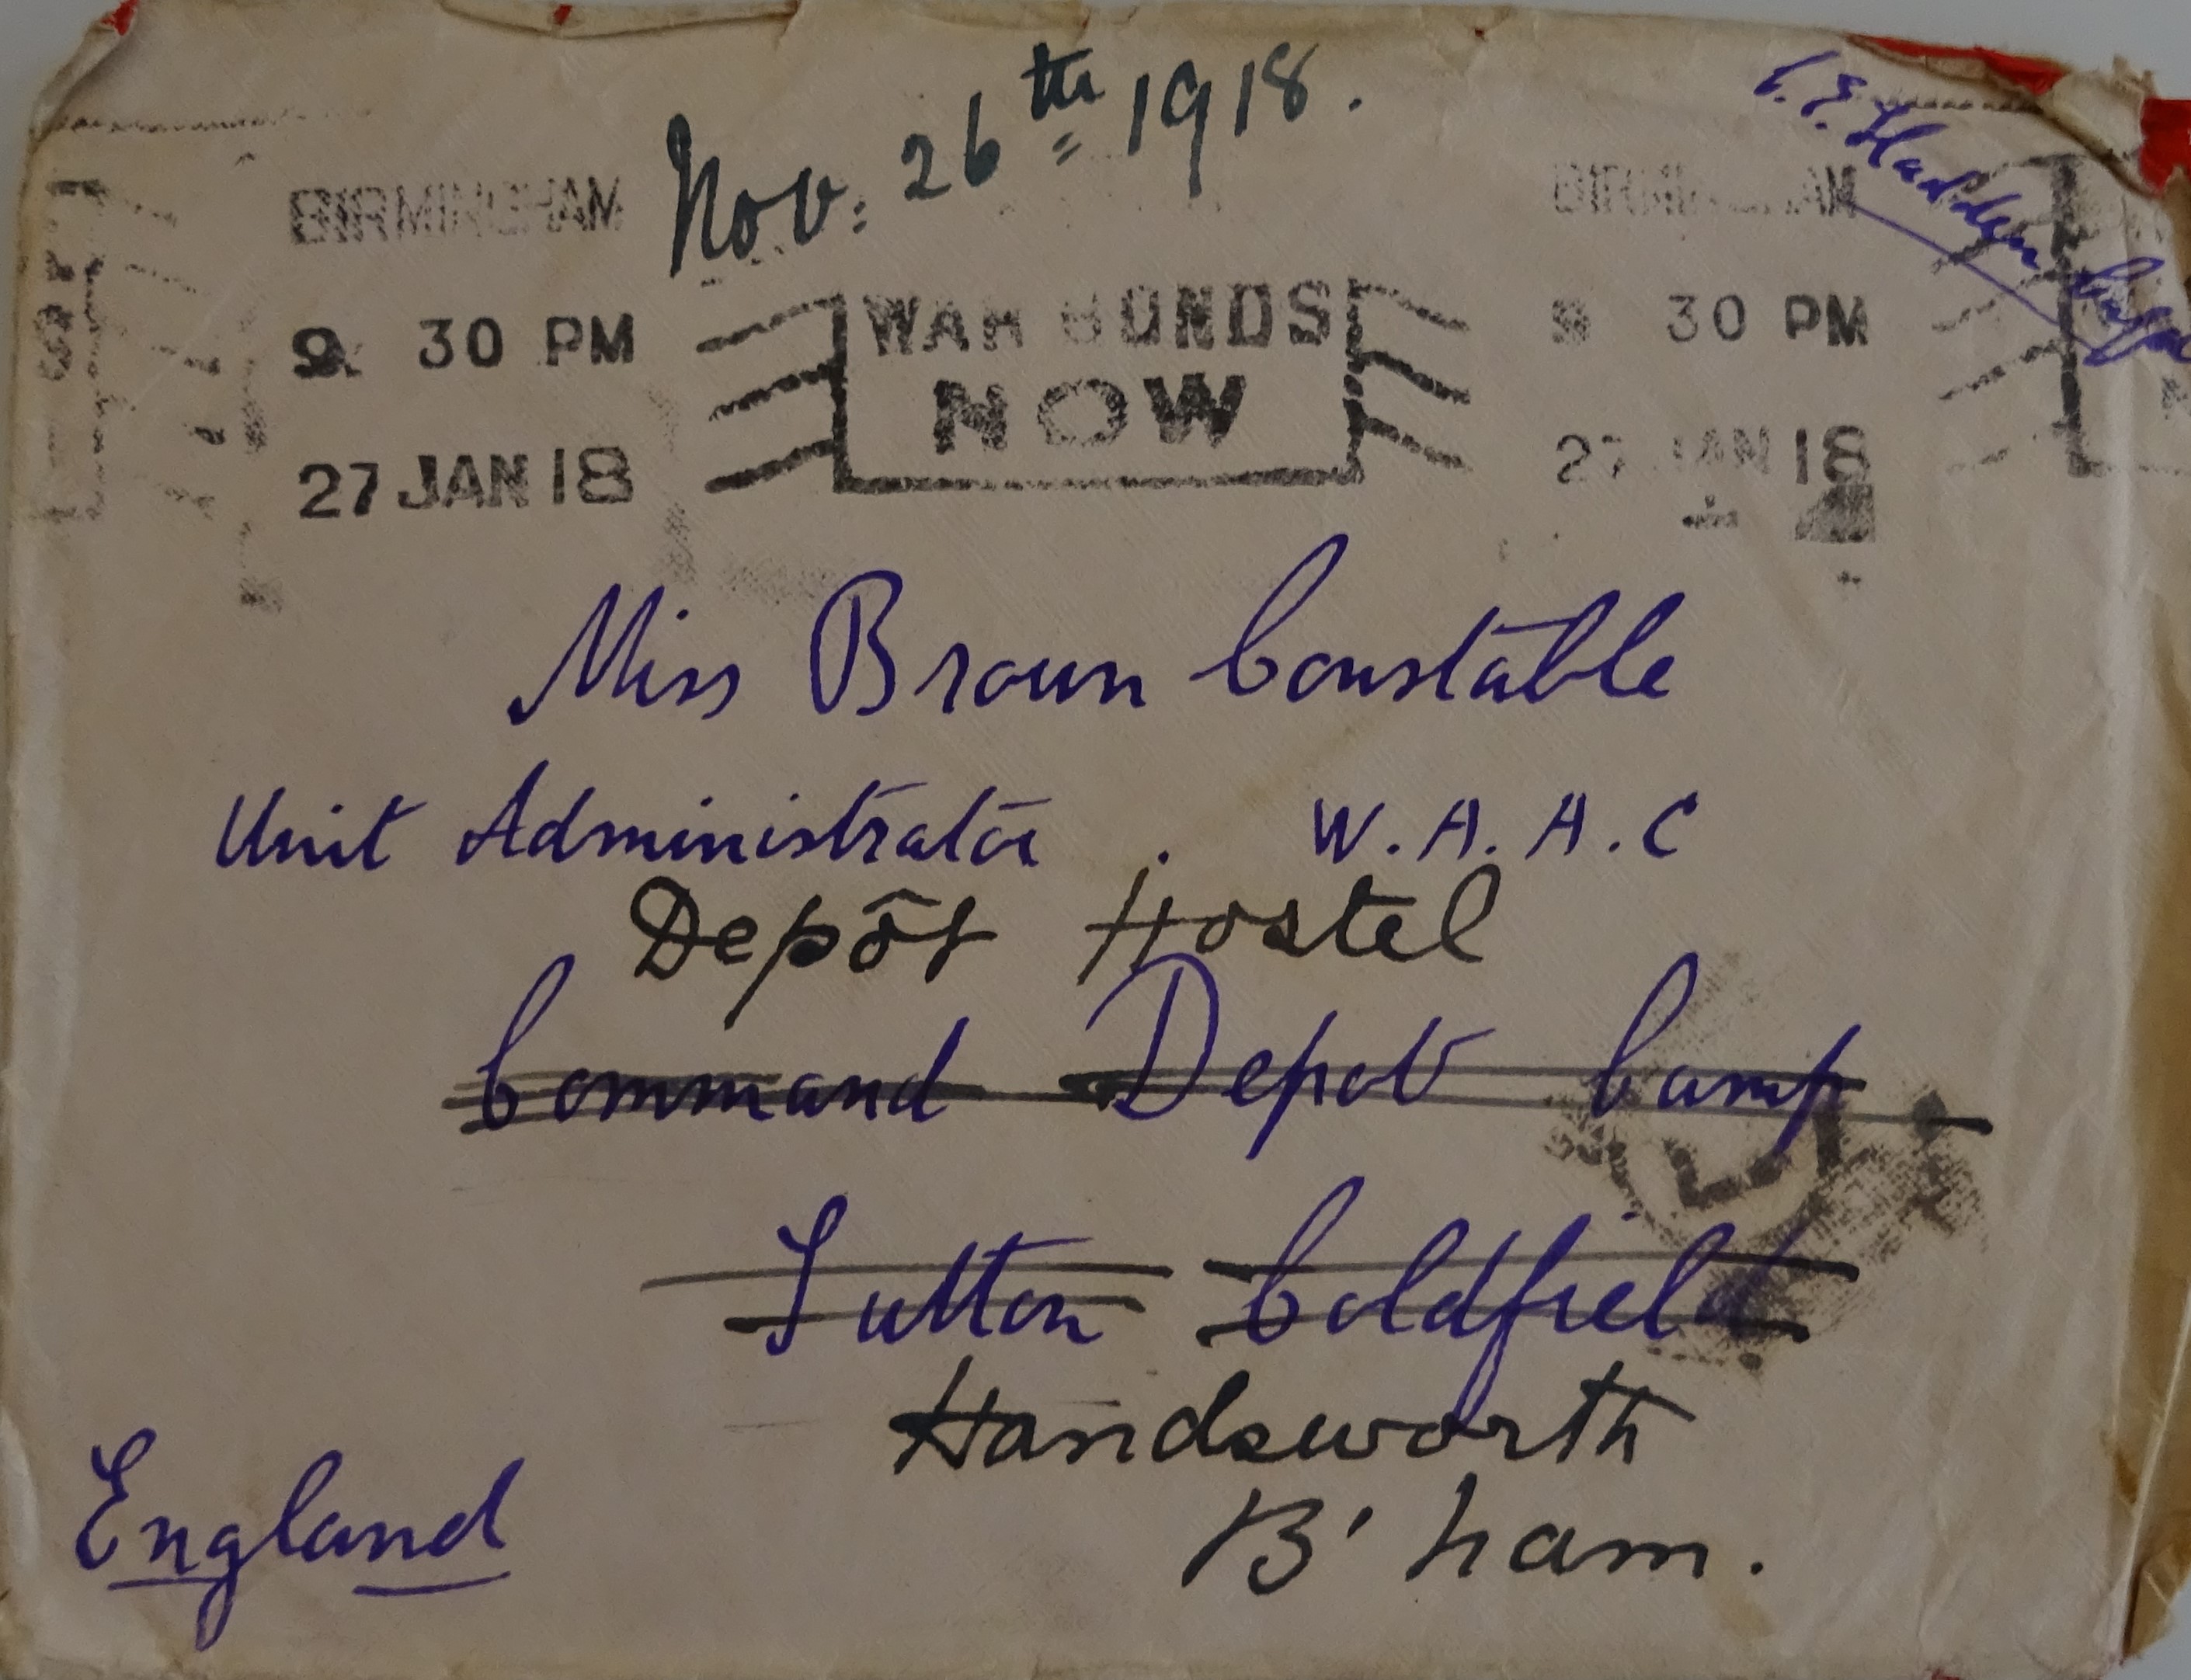 Nov: 26th 1918.
Hadden
BIRMINGHAM
BIRMINGHAM
30 PM
WAR BONDS
30 PM
NOW
27 JAN 18
27 JAN 18
Miss Broun Constable
Unit Administrator . W.A.A.C
Depôt Hostel
Command Depot Camp
Sutton Coldfield
Handsworth
England
B'ham.